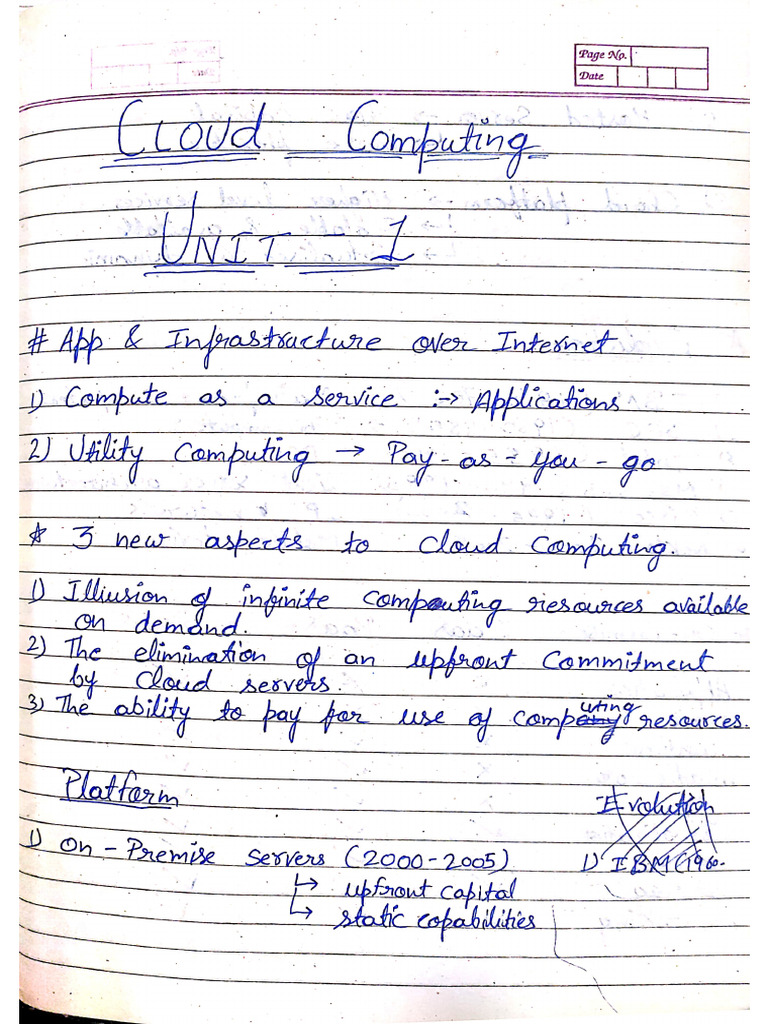 Page No.
Date
Cloud Computing
Unit - 1
# App & Infrastructure over Internet
1) Compute as a service :-> Applications
2) Utility Computing → Pay-as-you-go
* 3 new aspects to Cloud Computing.
1) Illiusion of infinite computing resources available
on demand.
2) The elimination of an upfront Commitment
by Cloud servers.
3) The ability to pay for use of computing resources.
Platform
Evolution
1) On-Premise servers (2000-2005)
1) IBM (1960-
↳ upfront capital
↳ static capabilities